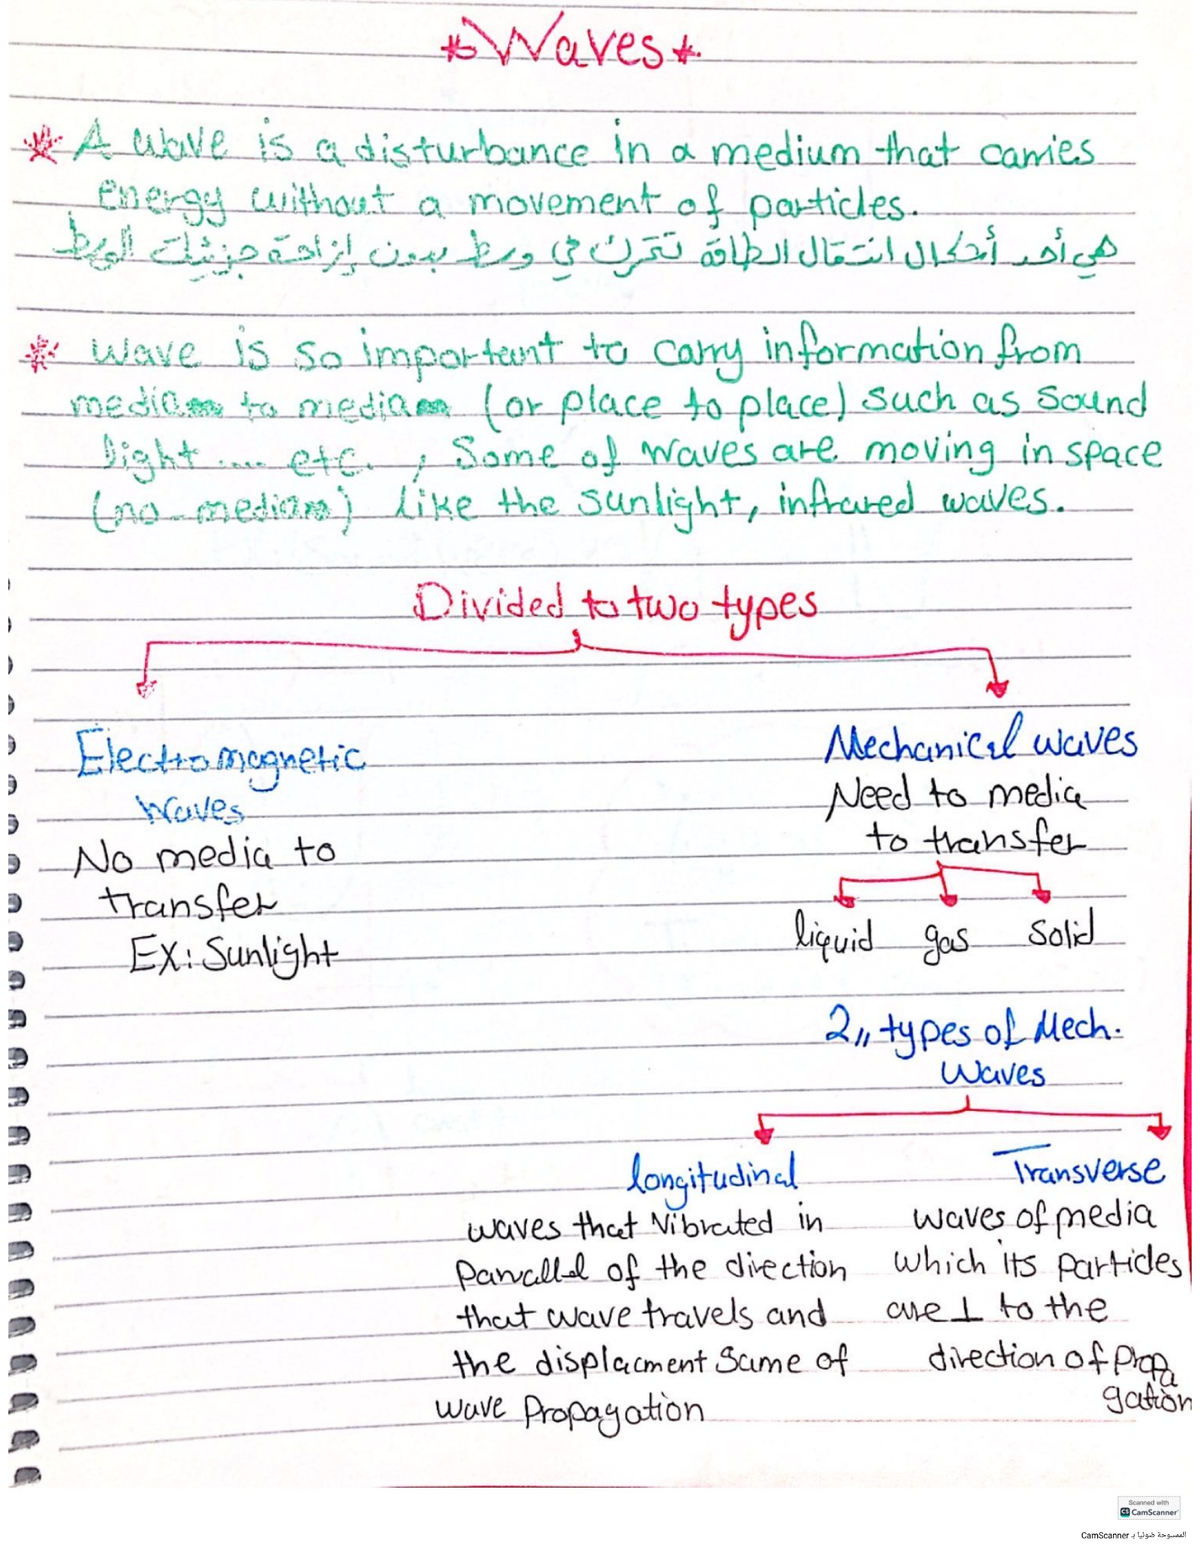 *Waves*
* A wave is a disturbance in a medium that carries
energy without a movement of particles.
هي أحد أشكال انتقال الطاقة تتحرك في وسط بدون إزاحة جزيئات الوسط
* wave is so important to carry information from
media to media (or place to place) such as sound
light .... etc. , Some of waves are moving in space
(no media) like the sunlight, infrared waves.
Divided to two types
Electromagnetic
Waves
No media to
transfer
EX: Sunlight
Mechanical waves
Need to media
to transfer
liquid gas solid
2,, types of Mech.
Waves
longitudinal
waves that Vibrated in
Parallel of the direction
that wave travels and
the displacment Same of
wave Propagation
Transverse
waves of media
which its particles
are ⊥ to the
direction of propa
gation
Scanned with
CS CamScanner
الممسوحة ضوئيا بـ CamScanner